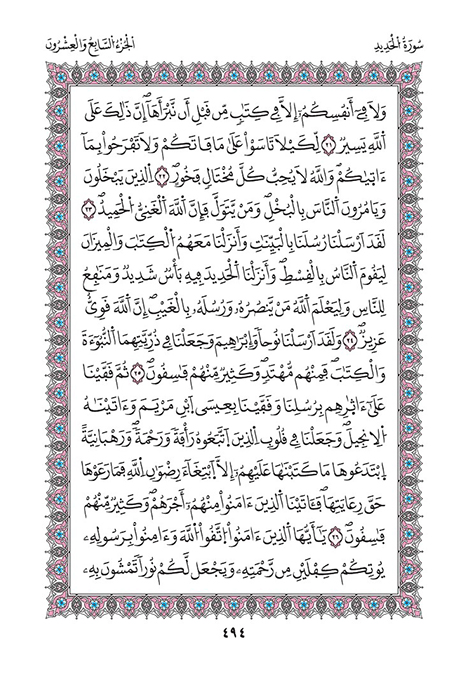 سُورَةُ الْحَدِيدِ
الْجُزْءُ السَّابِعُ وَالْعِشْرُونَ
وَلَا فِےٓ أَنفُسِكُمُۥٓ إِلَّا فِے كِتَٰبٖ مِّن قَبْلِ أَن نَّبْرَأَهَآۖ إِنَّ ذَٰلِكَ عَلَى
اَللَّهِ يَسِيرٞۖ ٢١ لِّكَيْلَا تَاسَوْاْ عَلَىٰ مَا فَاتَكُمْ وَلَا تَفْرَحُواْ بِمَآ
ءَاتَىٰكُمْۖ وَاللَّهُ لَا يُحِبُّ كُلَّ مُخْتَالٖ فَخُورٍۖ ٢٢ اِلذِينَ يَبْخَلُونَ
وَيَامُرُونَ اَلنَّاسَ بِالْبُخْلِۖ وَمَنْ يَّتَوَلَّ فَإِنَّ اَللَّهَ اَلْغَنِيُّ اُلْحَمِيدُۖ ٢٣
لَقَدَ اَرْسَلْنَا رُسُلَنَا بِالْبَيِّنَٰتِ وَأَنزَلْنَا مَعَهُمُ اُلْكِتَٰبَ وَالْمِيزَانَ
لِيَقُومَ اَلنَّاسُ بِالْقِسْطِۖ وَأَنزَلْنَا اَلْحَدِيدَ فِيهِ بَأْسٞ شَدِيدٞ وَمَنَٰفِعُ
لِلنَّاسِ وَلِيَعْلَمَ اَللَّهُ مَنْ يَّنصُرُهُۥ وَرُسُلَهُۥ بِالْغَيْبِۖ إِنَّ اَللَّهَ قَوِيٌّ
عَزِيزٞۖ ٢٤ وَلَقَدَ اَرْسَلْنَا نُوحاٗ وَإِبْرَٰهِيمَ وَجَعَلْنَا فِے ذُرِّيَّتِهِمَا اَلنُّبُوٓءَةَ
وَالْكِتَٰبَۖ فَمِنْهُم مُّهْتَدٖۖ وَكَثِيرٞ مِّنْهُمْ فَٰسِقُونَۖ ٢٥ ثُمَّ قَفَّيْنَا
عَلَىٰٓ ءَاثٰ۪رِهِم بِرُسُلِنَا وَقَفَّيْنَا بِعِيسَى اَبْنِ مَرْيَمَ وَءَاتَيْنَٰهُ
اُلِانجِيلَۖ وَجَعَلْنَا فِے قُلُوبِ اِلذِينَ اَتَّبَعُوهُ رَأْفَةٗ وَرَحْمَةٗۖ وَرَهْبَانِيَّةً
اِبْتَدَعُوهَا مَا كَتَبْنَٰهَا عَلَيْهِمُۥٓ إِلَّا اَبْتِغَآءَ رِضْوَٰنِ اِللَّهِ فَمَا رَعَوْهَا
حَقَّ رِعَايَتِهَاۖ فَـَٔاتَيْنَا اَلذِينَ ءَامَنُواْ مِنْهُمُۥٓ أَجْرَهُمْۖ وَكَثِيرٞ مِّنْهُمْ
فَٰسِقُونَۖ ٢٦ يَٰٓأَيُّهَا اَلذِينَ ءَامَنُواْ اُتَّقُواْ اُللَّهَ وَءَامِنُواْ بِرَسُولِهِۦ
يُوتِكُمْ كِفْلَيْنِ مِن رَّحْمَتِهِۦ وَيَجْعَل لَّكُمْ نُوراٗ تَمْشُونَ بِهِۦ
٤٩٤